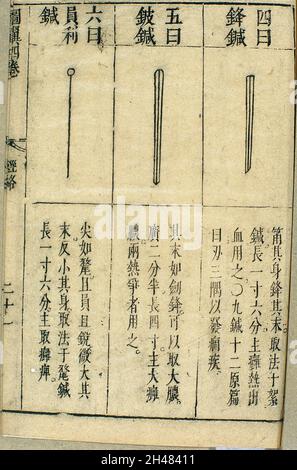 四曰
鋒鍼
筩其身鋒其末取法于絮
鍼長一寸六分主癰熱出
血用之〇九鍼十二原篇
曰刃三隅以發痼疾
五曰
鈹鍼
其末如劍鋒可以取大膿
廣二分半長四寸主大癰
膿兩熱爭者用之
六曰
員利
鍼
尖如氂且員且銳微大其
末反小其身取法于氂鍼
長一寸六分主取癰痺
圖翼四卷
經絡
二十一
alamy
Image ID: 2H48411
www.alamy.com